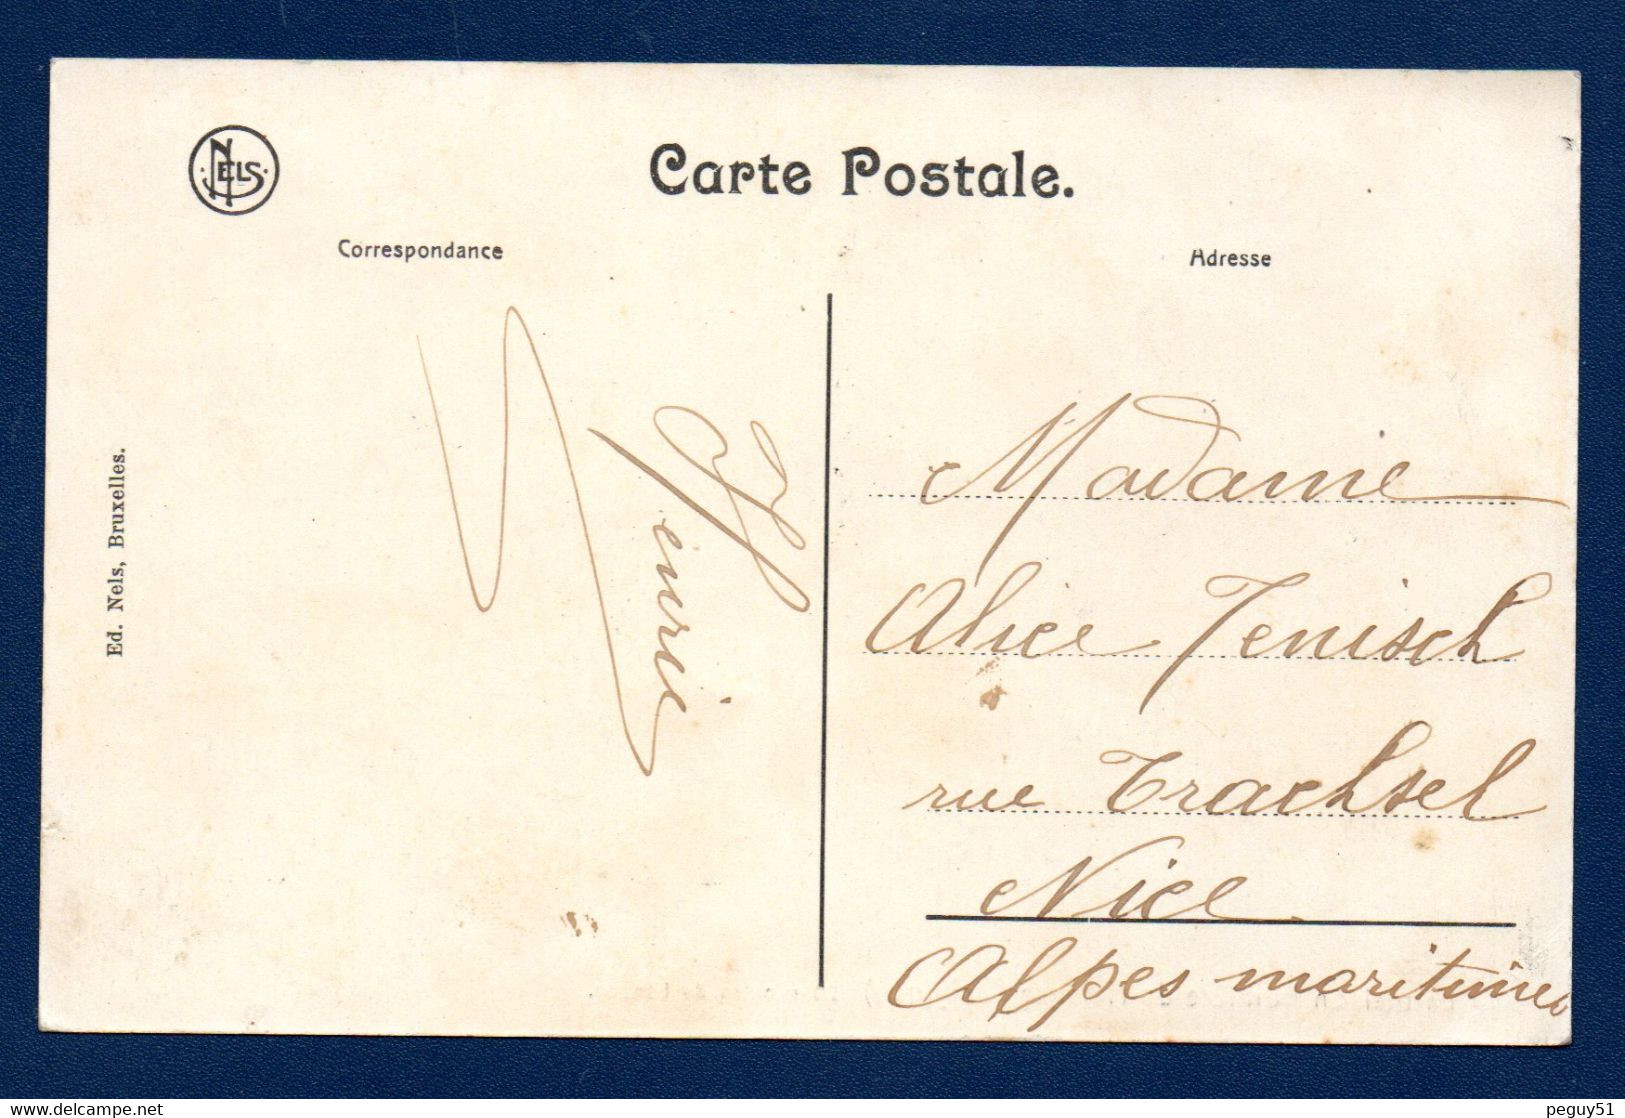 NELS
Carte Postale.
Correspondance
Adresse
Ed. Nels, Bruxelles.
Henrie
Madame
Alice Jenisch
rue Trachsel
Nice
Alpes maritimes
peguy51